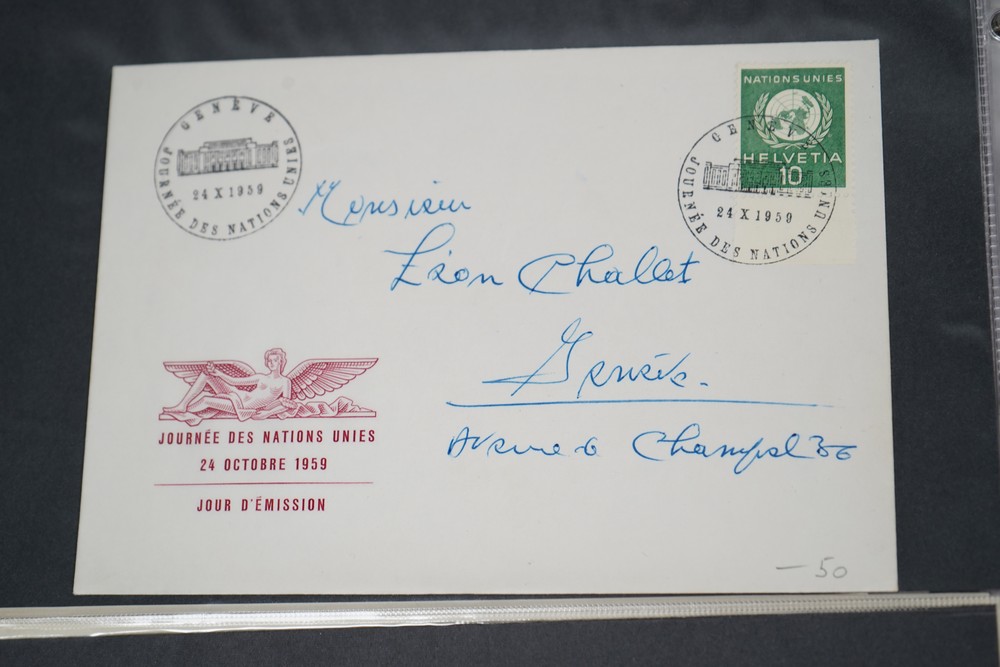 GENÈVE
24 X 1959
JOURNÉE DES NATIONS UNIES
NATIONS UNIES
HELVETIA
10
GENÈVE
24 X 1959
JOURNÉE DES NATIONS UNIES
Monsieur
Léon Challet
Genève.
Avenue de Champel 36
JOURNÉE DES NATIONS UNIES
24 OCTOBRE 1959
JOUR D'ÉMISSION
—50